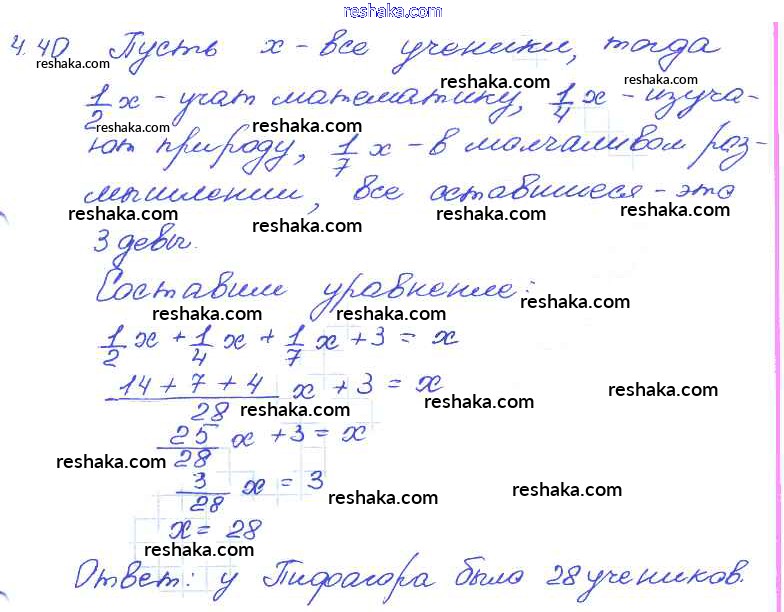 reshaka.com
4.40 Пусть x - все ученики, тогда
reshaka.com reshaka.com reshaka.com
1/2 x - учат математику, 1/4 x - изуча-
reshaka.com reshaka.com reshaka.com
ют природу, 1/7 x - в молчаливом раз-
мышлении, все оставшиеся - это
reshaka.com reshaka.com reshaka.com reshaka.com
3 девы.
Составим уравнение:
reshaka.com reshaka.com reshaka.com
1/2 x + 1/4 x + 1/7 x + 3 = x
reshaka.com
(14 + 7 + 4)/28 x + 3 = x
reshaka.com reshaka.com reshaka.com
25/28 x + 3 = x
reshaka.com
3/28 x = 3
reshaka.com reshaka.com
x = 28
reshaka.com
Ответ: у Пифагора было 28 учеников.